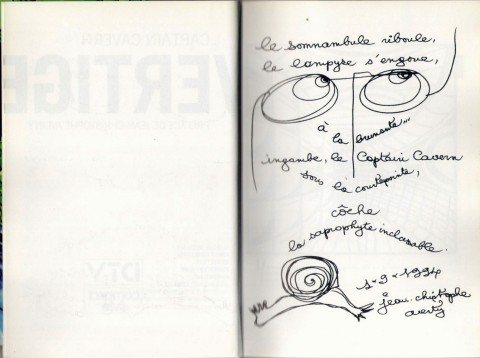 CAPTAIN CAVERN
VERTIGE
DTV
le somnambule riboule,
le lampyre s'engoue,
à la brunante...
ingambe, le Captain Cavern
sous la courtepointe,
côche
la saprophyte inclassable.
1-9-1994
jean-christophe
averty